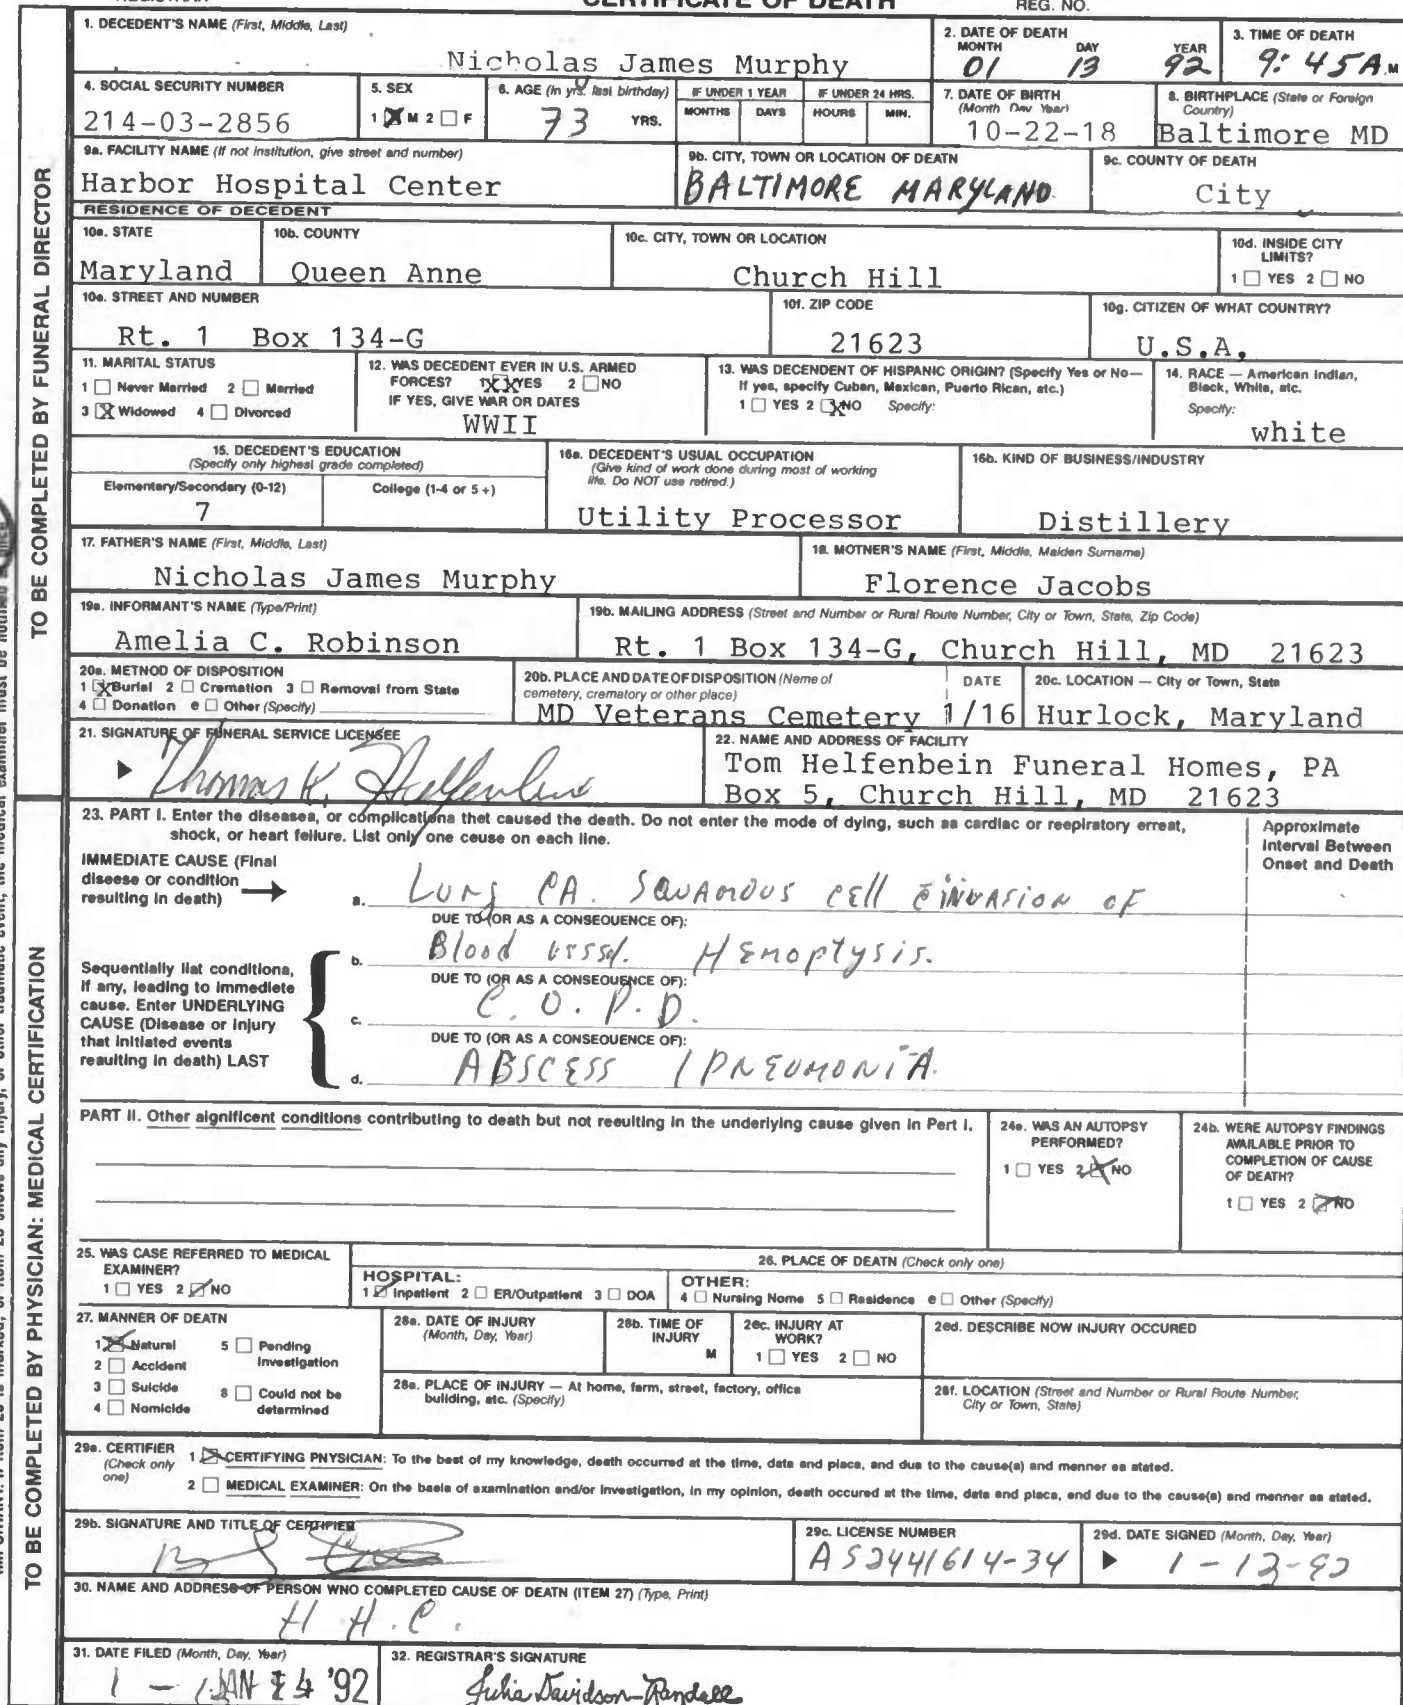 CERTIFICATE OF DEATH
REG. NO.
1. DECEDENT'S NAME (First, Middle, Last)
Nicholas James Murphy
2. DATE OF DEATH
MONTH DAY YEAR
01 13 92
3. TIME OF DEATH
9:45 A.M
4. SOCIAL SECURITY NUMBER
214-03-2856
5. SEX
1 X M 2 □ F
6. AGE (In yrs. last birthday)
73 YRS.
IF UNDER 1 YEAR
MONTHS DAYS
IF UNDER 24 HRS.
HOURS MIN.
7. DATE OF BIRTH
(Month Day Year)
10-22-18
8. BIRTHPLACE (State or Foreign
Country)
Baltimore MD
9a. FACILITY NAME (If not institution, give street and number)
Harbor Hospital Center
9b. CITY, TOWN OR LOCATION OF DEATH
BALTIMORE MARYLAND
9c. COUNTY OF DEATH
City
RESIDENCE OF DECEDENT
10a. STATE
Maryland
10b. COUNTY
Queen Anne
10c. CITY, TOWN OR LOCATION
Church Hill
10d. INSIDE CITY
LIMITS?
1 □ YES 2 □ NO
10e. STREET AND NUMBER
Rt. 1 Box 134-G
10f. ZIP CODE
21623
10g. CITIZEN OF WHAT COUNTRY?
U.S.A.
11. MARITAL STATUS
1 □ Never Married 2 □ Married
3 X Widowed 4 □ Divorced
12. WAS DECEDENT EVER IN U.S. ARMED
FORCES? 1XX YES 2 □ NO
IF YES, GIVE WAR OR DATES
WWII
13. WAS DECENDENT OF HISPANIC ORIGIN? (Specify Yes or No—
If yes, specify Cuban, Mexican, Puerto Rican, etc.)
1 □ YES 2 X NO Specify:
14. RACE — American Indian,
Black, White, etc.
Specify:
white
15. DECEDENT'S EDUCATION
(Specify only highest grade completed)
Elementary/Secondary (0-12)
7
College (1-4 or 5+)
16a. DECEDENT'S USUAL OCCUPATION
(Give kind of work done during most of working
life. Do NOT use retired.)
Utility Processor
16b. KIND OF BUSINESS/INDUSTRY
Distillery
17. FATHER'S NAME (First, Middle, Last)
Nicholas James Murphy
18. MOTNER'S NAME (First, Middle, Maiden Surname)
Florence Jacobs
19a. INFORMANT'S NAME (Type/Print)
Amelia C. Robinson
19b. MAILING ADDRESS (Street and Number or Rural Route Number, City or Town, State, Zip Code)
Rt. 1 Box 134-G, Church Hill, MD 21623
20a. METNOD OF DISPOSITION
1 X Burial 2 □ Cremation 3 □ Removal from State
4 □ Donation e □ Other (Specify)
20b. PLACE AND DATE OF DISPOSITION (Name of
cemetery, crematory or other place)
MD Veterans Cemetery
DATE
1/16
20c. LOCATION — City or Town, State
Hurlock, Maryland
21. SIGNATURE OF FUNERAL SERVICE LICENSEE
Thomas K. Helfenbein
22. NAME AND ADDRESS OF FACILITY
Tom Helfenbein Funeral Homes, PA
Box 5, Church Hill, MD 21623
TO BE COMPLETED BY FUNERAL DIRECTOR
23. PART I. Enter the diseases, or complications thet caused the death. Do not enter the mode of dying, such as cardiac or reepiratory erreat,
shock, or heart feilure. List only one ceuse on each line.
Approximate
Interval Between
Onset and Death
IMMEDIATE CAUSE (Final
diseese or condition
resulting in death)
a. Lung CA. Squamous cell c̄ invasion of
DUE TO (OR AS A CONSEQUENCE OF):
b. Blood vessel. Hemoptysis.
DUE TO (OR AS A CONSEQUENCE OF):
c. C.O.P.D.
DUE TO (OR AS A CONSEQUENCE OF):
d. ABSCESS / PNEUMONIA.
Sequentially list conditions,
if any, leading to immediete
cause. Enter UNDERLYING
CAUSE (Disease or injury
that initiated events
resulting in death) LAST
PART II. Other significent conditions contributing to death but not resulting in the underlying cause given in Pert I.
24e. WAS AN AUTOPSY
PERFORMED?
1 □ YES 2 X NO
24b. WERE AUTOPSY FINDINGS
AVAILABLE PRIOR TO
COMPLETION OF CAUSE
OF DEATH?
1 □ YES 2 ☑ NO
25. WAS CASE REFERRED TO MEDICAL
EXAMINER?
1 □ YES 2 ☑ NO
26. PLACE OF DEATH (Check only one)
HOSPITAL:
1 ☑ Inpatient 2 □ ER/Outpatient 3 □ DOA
OTHER:
4 □ Nursing Nome 5 □ Residence e □ Other (Specify)
27. MANNER OF DEATN
1 X Natural 5 □ Pending
Investigation
2 □ Accident
3 □ Suicide 8 □ Could not be
determined
4 □ Nomicide
28a. DATE OF INJURY
(Month, Day, Year)
28b. TIME OF
INJURY
M
2ec. INJURY AT
WORK?
1 □ YES 2 □ NO
2ed. DESCRIBE NOW INJURY OCCURED
28e. PLACE OF INJURY — At home, farm, street, factory, office
building, atc. (Specify)
28f. LOCATION (Street and Number or Rural Route Number,
City or Town, State)
29a. CERTIFIER
(Check only
one)
1 ☑ CERTIFYING PNYSICIAN: To the best of my knowledge, death occurred at the time, data and placa, and dua to the cause(a) and menner es stated.
2 □ MEDICAL EXAMINER: On the basis of examination and/or investigation, in my opinion, death occured at the time, date and placa, end due to the cause(s) and menner as stated.
29b. SIGNATURE AND TITLE OF CERTIFIER
29c. LICENSE NUMBER
AS2441614-34
29d. DATE SIGNED (Month, Day, Year)
1-13-92
30. NAME AND ADDRESS OF PERSON WNO COMPLETED CAUSE OF DEATH (ITEM 27) (Type, Print)
H H.C.
31. DATE FILED (Month, Day, Year)
JAN 14 '92
32. REGISTRAR'S SIGNATURE
Julia Davidson-Randall
TO BE COMPLETED BY PHYSICIAN: MEDICAL CERTIFICATION